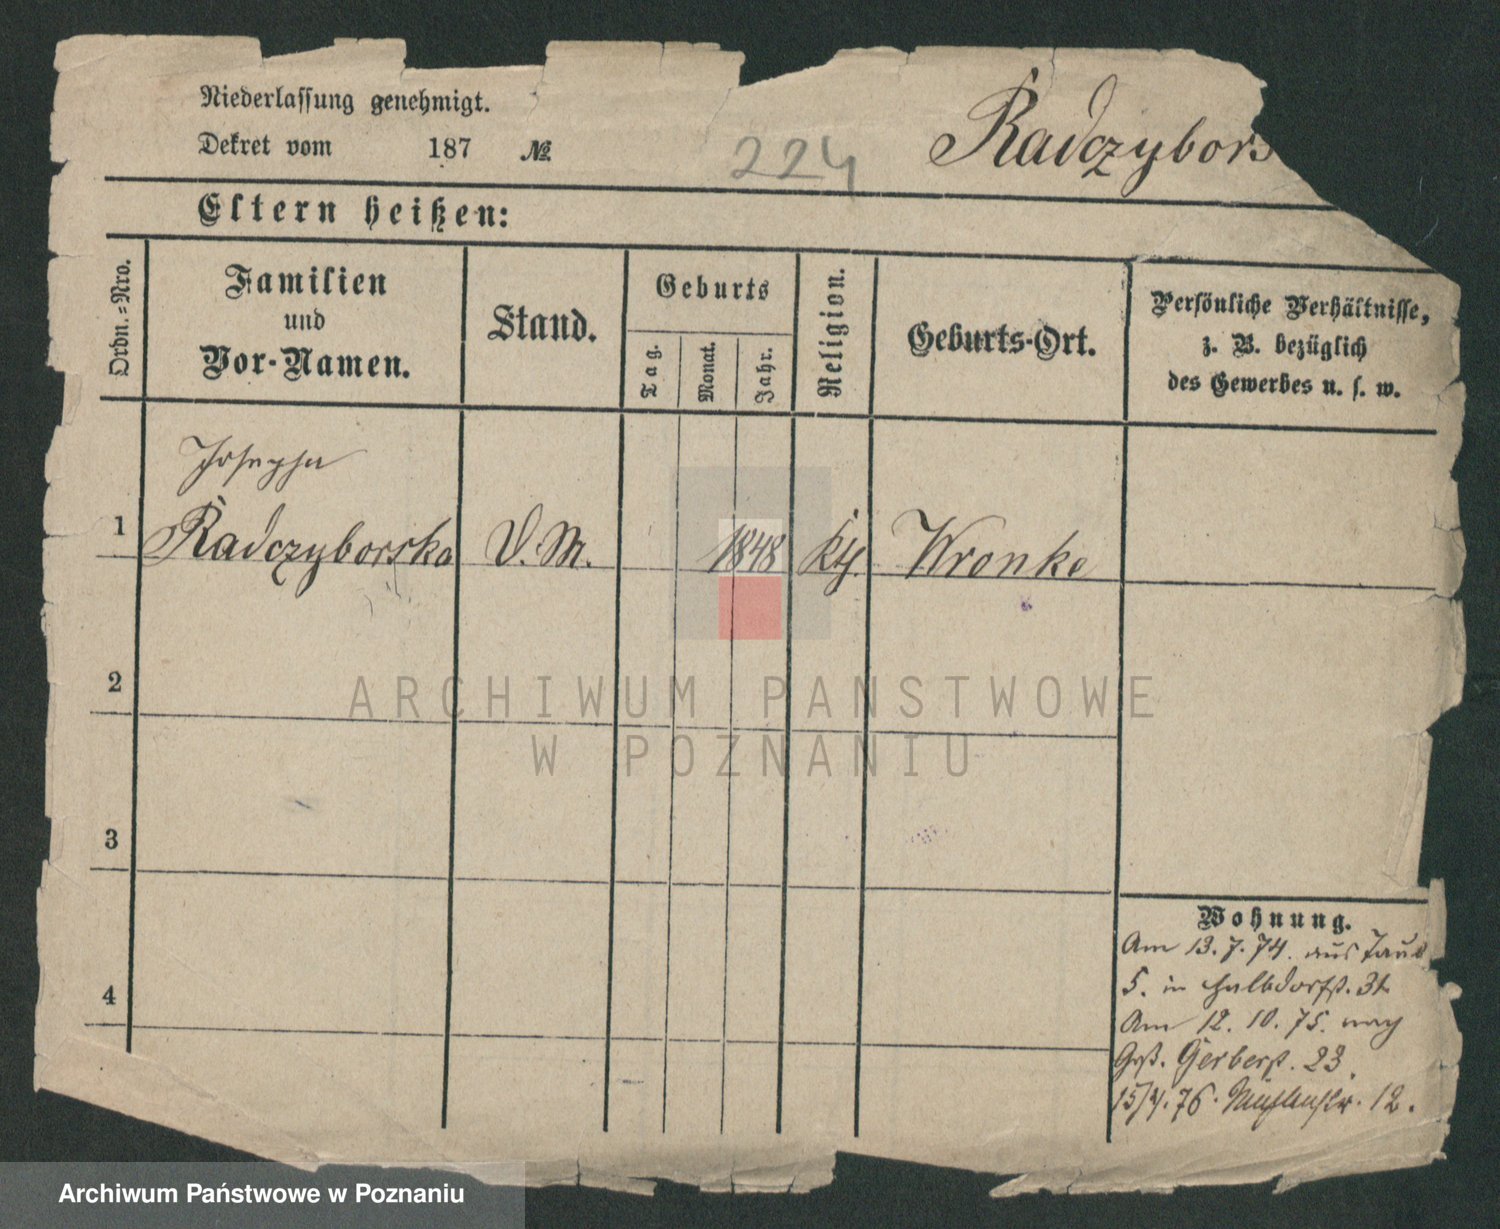 Niederlassung genehmigt.
Dekret vom 187 №
224
Radczybors
Eltern heißen:
Ordn.=Nro.
Familien
und
Vor-Namen.
Stand.
Geburts
Tag.
Monat.
Jahr.
Religion.
Geburts-Ort.
Persönliche Verhältnisse,
z. B. bezüglich
des Gewerbes u. s. w.
Josepha
1 Radczyborska D. M. 1848 Kth. Wronke
2
3
4
Wohnung.
Am 13.7.74. aus Taub
5. in Halbdorfst. 31
Am 12. 10. 75. nach
Grß. Gerberst. 23.
76. 12.
ARCHIWUM PAŃSTWOWE
W POZNANIU
Archiwum Państwowe w Poznaniu